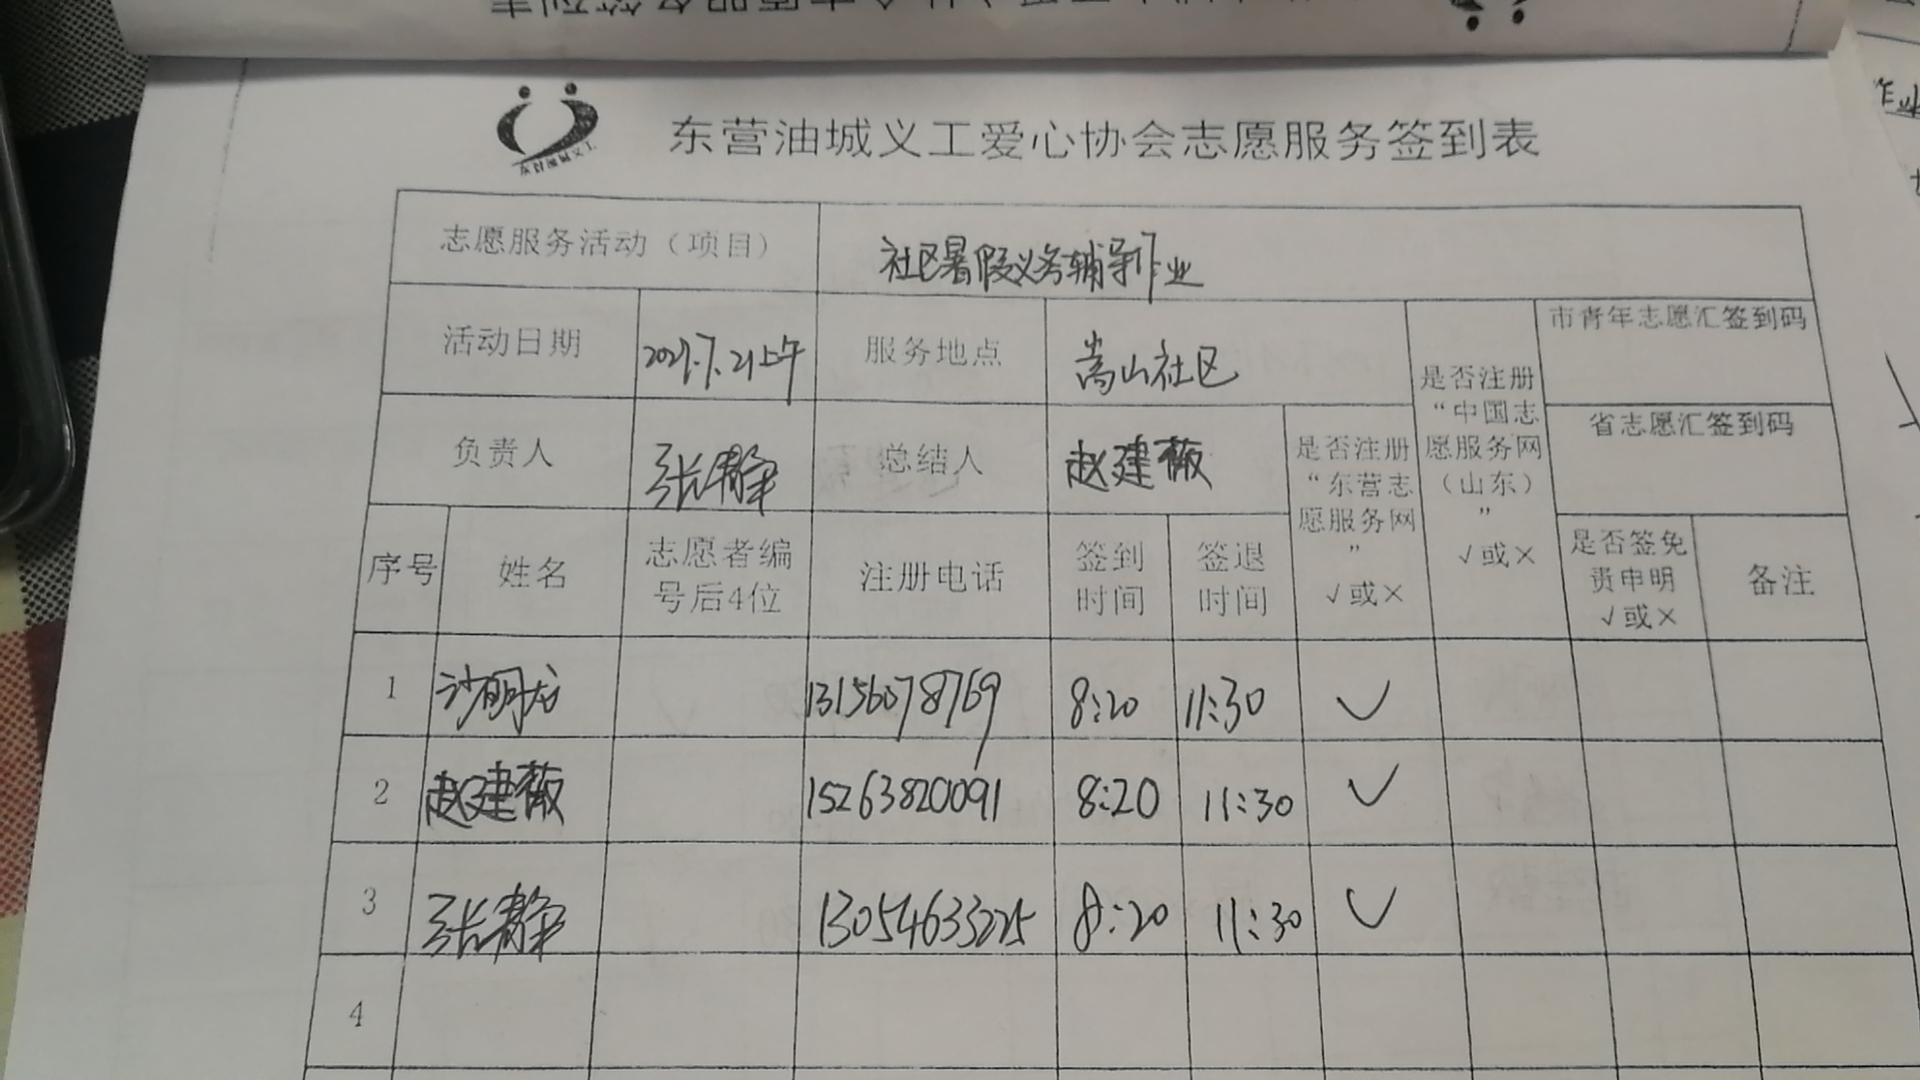 东营油城义工
东营油城义工爱心协会志愿服务签到表
志愿服务活动（项目） 社区暑假义务辅导作业
活动日期 2021.7.21上午 服务地点 嵩山社区 是否注册“中国志愿服务网（山东）” √或× 市青年志愿汇签到码
省志愿汇签到码
负责人 张静 总结人 赵建薇 是否注册“东营志愿服务网” √或×
序号 姓名 志愿者编号后4位 注册电话 签到时间 签退时间 是否签免责申明 √或× 备注
1 沙明龙 13156078769 8:20 11:30 √
2 赵建薇 15263820091 8:20 11:30 √
3 张静 13054633225 8:20 11:30 √
4